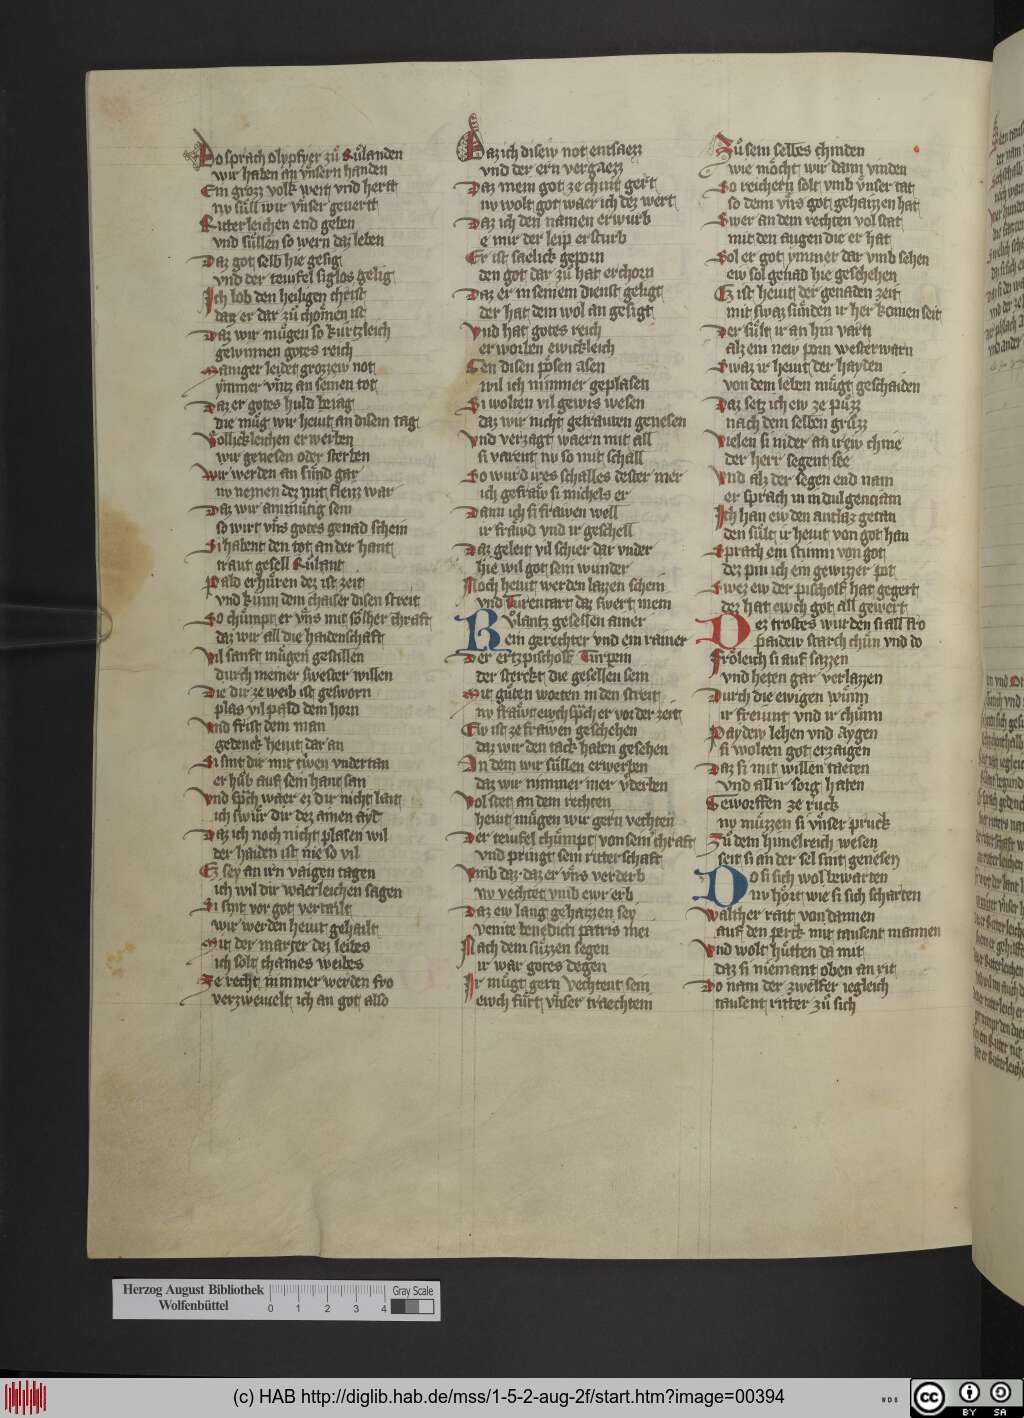 Do sprach olypfyer zů Růlanden
wir haben an vnsern handen
Ein grozz volk weit vnd herst
nv süll wir vnser geuertt
Ritterleichen end geben
vnd süllen so wern daz leben
Daz got selb hie gesig
vnd der tewfel siglos gelig
Ich lob den heiligen christ
daz er dar zů chomen ist
Daz wir mügen so kurtzleich
gewinnen gotes reich
Maniger leidet grozzew not
ymmer vntz an seinen tot
Daz er gotes huld beiag
die müg wir hewt an disem tag
Vollickleichen erwerben
wir genesen oder sterben
Wir werden an sünd gar
nv nemen dez mit fleizz war
Daz wir ainmütig sein
so wirt vns gotes genad schein
Si habent den tot an der hant
traut gesell Růlant
Pald erhüren dez ist zeit
vnd kum dem chaiser disen streit
So chümpt er vns mit sölher chraft
daz wir all die haidenschaft
Vil sanft mügen gestillen
durch meiner swester willen
Die dir ze weib ist gesworn
plas vil pald dein horn
Vnd frist dein man
gedenck hewt dar an
Si sint dir mit triwen vndertan
er hůb auf sein hant san
Vnd sprch waer ez dir nicht lait
ich swür dir dez ainen ayt
Daz ich noch nicht plasen wil
der haiden ist nie so vil
Ez sey an irn vaigen tagen
ich wil dir waerleichen sagen
Si sint vor got vertailt
wir werden hewt gehailt
Mit der marter dez leibes
ich solt chaines weibes
Ze recht nimmer werden fro
verzweiuelt ich an got also
Daz ich disew not entsaezz
vnd der ern vergaezz
Daz mein got ze chint gert
nv wolt got waer ich dez wert
Daz ich den namen erwurb
e mir der leip ersturb
Er ist saelick geporn
den got dar zů hat erchorn
Daz er in seinem dienst geligt
der hat dem wol an gesigt
Vnd hat gotes reich
erworben ewickleich
Gen disen pösen asen
wil ich nimmer geplasen
Si wolten vil gewis wesen
daz wir nicht getrauten genesen
Vnd verzagt waern mit all
si varent nv so mit schall
So wurd ires schalles dester mer
ich gefraw si michels er
Dann ich si frawen woll
ir fräwd vnd ir geschell
Daz geleit vil schier dar vnder
hie wil got sein wunder
Noch hewt werden lazzen schein
vnd Turentart daz swert mein
Růlantz gesellen ainer
ein gerechter vnd ein rainer
Der ertzpischolf Turpein
der sterckt die gesellen sein
Mit güten worten in den streit
nv frawt ewch sprch er vor der zeit
Ew ist ze frawen geschehen
daz wir den tack haben gesehen
An dem wir süllen erwerben
daz wir nimmer mer vderben
Wol stet an dem rechten
hewt mügen wir gern vechten
Der tewfel chümpt von sein chraft
vnd pringt sein ritterschaft
Vmb daz daz er vns verderb
nv vechtet vmb ewr erb
Daz ew lang gehaizzen sey
venite benedicti patris mei
Nach dem süzzen segen
ir war gotes degen
Ir mügt gern vechtent sein
ewch fürt vnser traechtein
Zů sein selbes chinden
wie möcht wir dann vinden
So reichern solt vmb vnser tat
so denn vns got gehaizzen hat
Swer an dem rechten vol stat
mit den augen die er hat
Sol er got ymmer dar vmb sehen
ew sol genad hie geschehen
Ez ist hewt der genaden zeit
mit swaz sünden ir her komen seit
Der sült ir an hin varn
alz ein new porn westerwarn
Swaz ir hewt der hayden
von dem leben mügt geschaiden
Daz setz ich ew ze püzz
nach dem selben grüzz
Vielen si nider an irew chnie
der herr segent see
Vnd alz der segen end nam
er sprach in indulgenciam
Ich han ew den antlaz getan
den sült ir hewt von got han
Sprach ein stimm von got
dez pin ich ein gewizzer pot
Swez ew der pischolf hat gegert
dez hat ewch got all gewert
Dez trostes wurden si all fro
paidew starch chün vnd do
Fröleich si auf sazzen
vnd heten gar verlazzen
Durch die ewigen wünn
ir freunt vnd ir chünn
Paydew lehen vnd aygen
si wolten got erzaigen
Daz si mit willen taeten
vnd all ir sorg haten
Geworffen ze ruck
nv müzzen si vnser pruck
Zů dem himelreich wesen
seit si an der sel sint genesen
Do si sich wol bewarten
nv hört wie si sich scharten
Walther rait von dannen
auf den perck mit tausent mannen
Vnd wolt hütten da mit
daz si niemant oben an rit
Do nam der zwelfer iegleich
tausent ritter zů sich
Herzog August Bibliothek
Wolfenbüttel
0 1 2 3 4
Gray Scale
(c) HAB http://diglib.hab.de/mss/1-5-2-aug-2f/start.htm?image=00394
cc BY SA